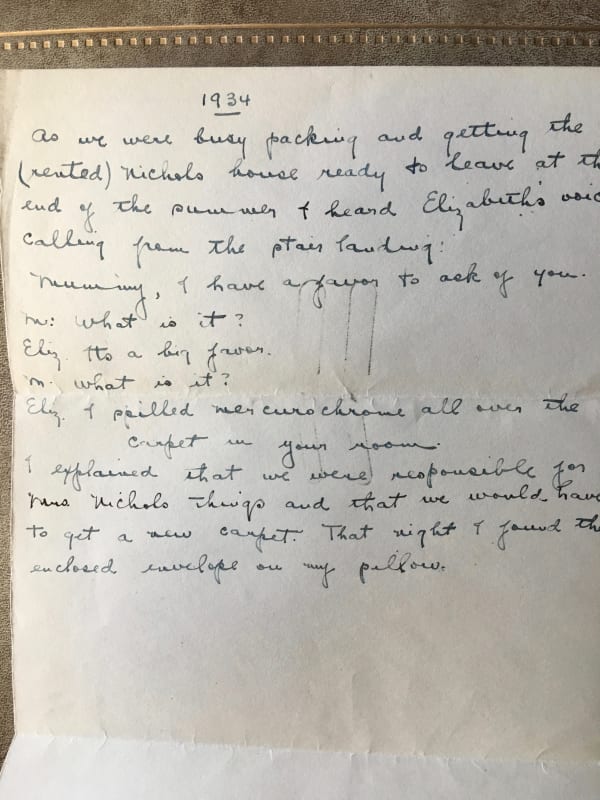 1934
As we were busy packing and getting the
(rented) Nichols house ready to leave at th
end of the summer I heard Elizabeth's voic
calling from the stair landing:
Mummy, I have a favor to ask of you.
M: What is it?
Eliz. Its a big favor.
M. What is it?
Eliz. I spilled mercurochrome all over the
carpet in your room.
I explained that we were responsible for
Mrs Nichols things and that we would have
to get a new carpet. That night I found the
enclosed envelope on my pillow.